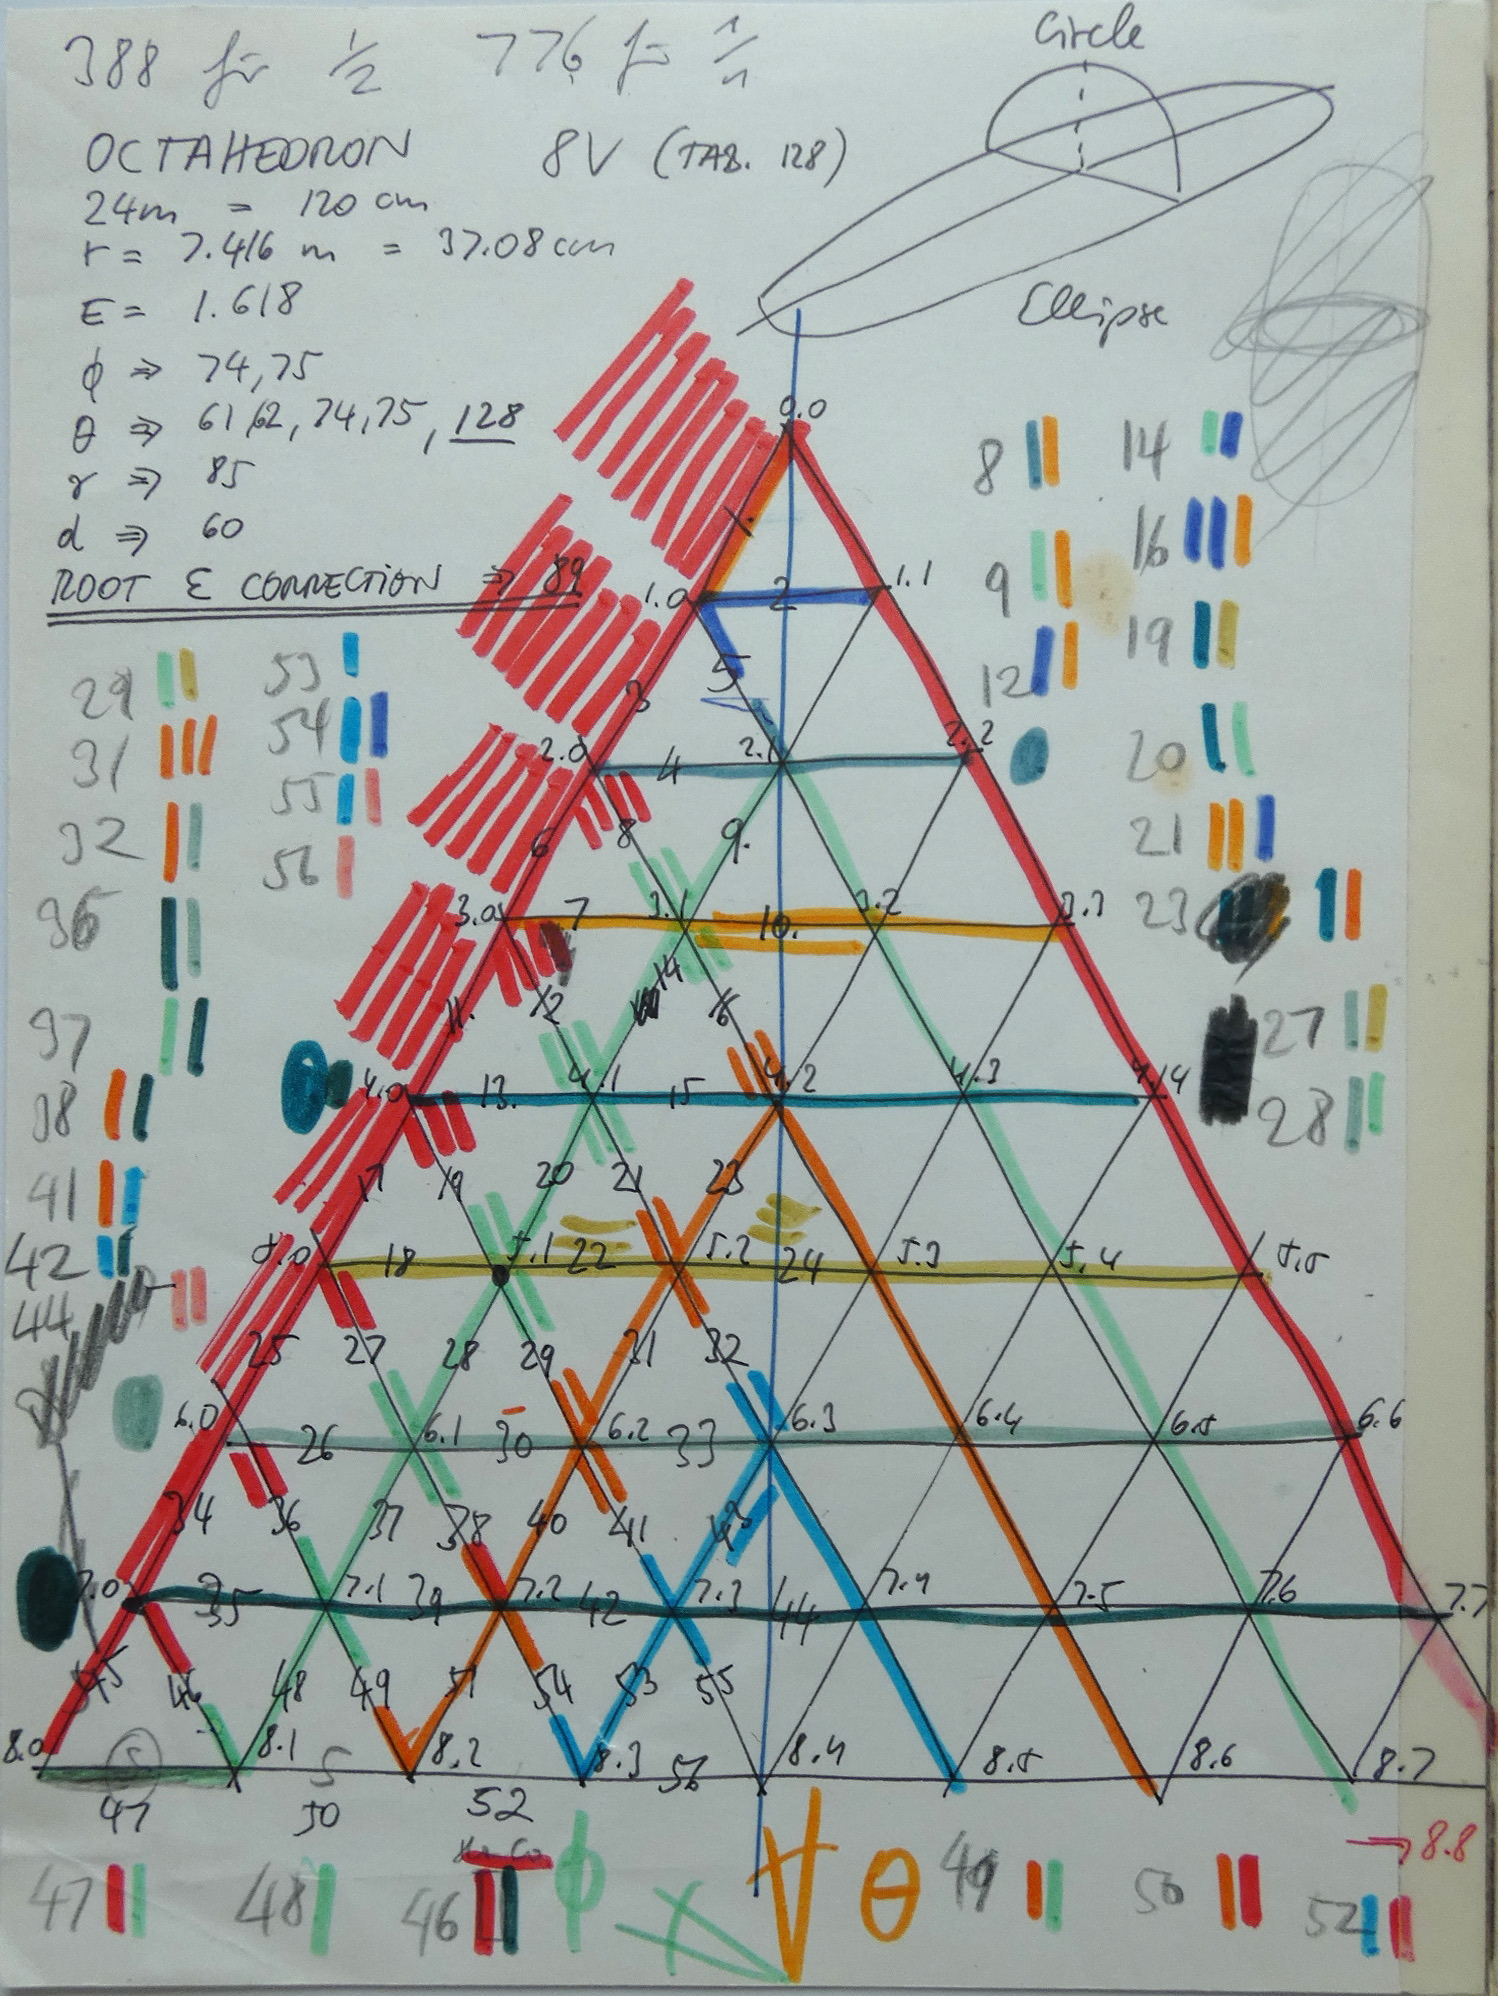 388 für 1/2 776 für 1/1
Circle
OCTAHEDRON 8V (TAB. 128)
24m = 120 cm
r = 7.416 m = 37.08 cm
E = 1.618
Ellipse
ϕ ⇒ 74,75
θ ⇒ 61,62, 74,75, 128
γ ⇒ 85
d ⇒ 60
ROOT & CONNECTION ⇒ 89
0.0
8 14
16
1.0 2 1.1
9
19
5
12
3
29 53
31 54
2.0 4 2.1 2.2
20
55
32 56
6 8 9.
21
36
3.0 7 3.1 10. 3.2 3.3
23
11. 12 14 16
37 27
4.0 13. 4.1 15 4.2 4.3 4.4
38 28
17 19 20 21 23
41
42
5.0 18 5.1 22 5.2 24 5.3 5.4 5.5
44
25 27 28 29 31 32
6.0 26 6.1 30 6.2 33 6.3 6.4 6.5 6.6
34 36 37 38 40 41 43
7.0 35 7.1 39 7.2 42 7.3 44 7.4 7.5 7.6 7.7
45 46 48 49 51 54 53 55
8.0 S 8.1 S 8.2 8.3 56 8.4 8.5 8.6 8.7
47 50 52
8.8
47 48 46 ϕ θ 49 50 52